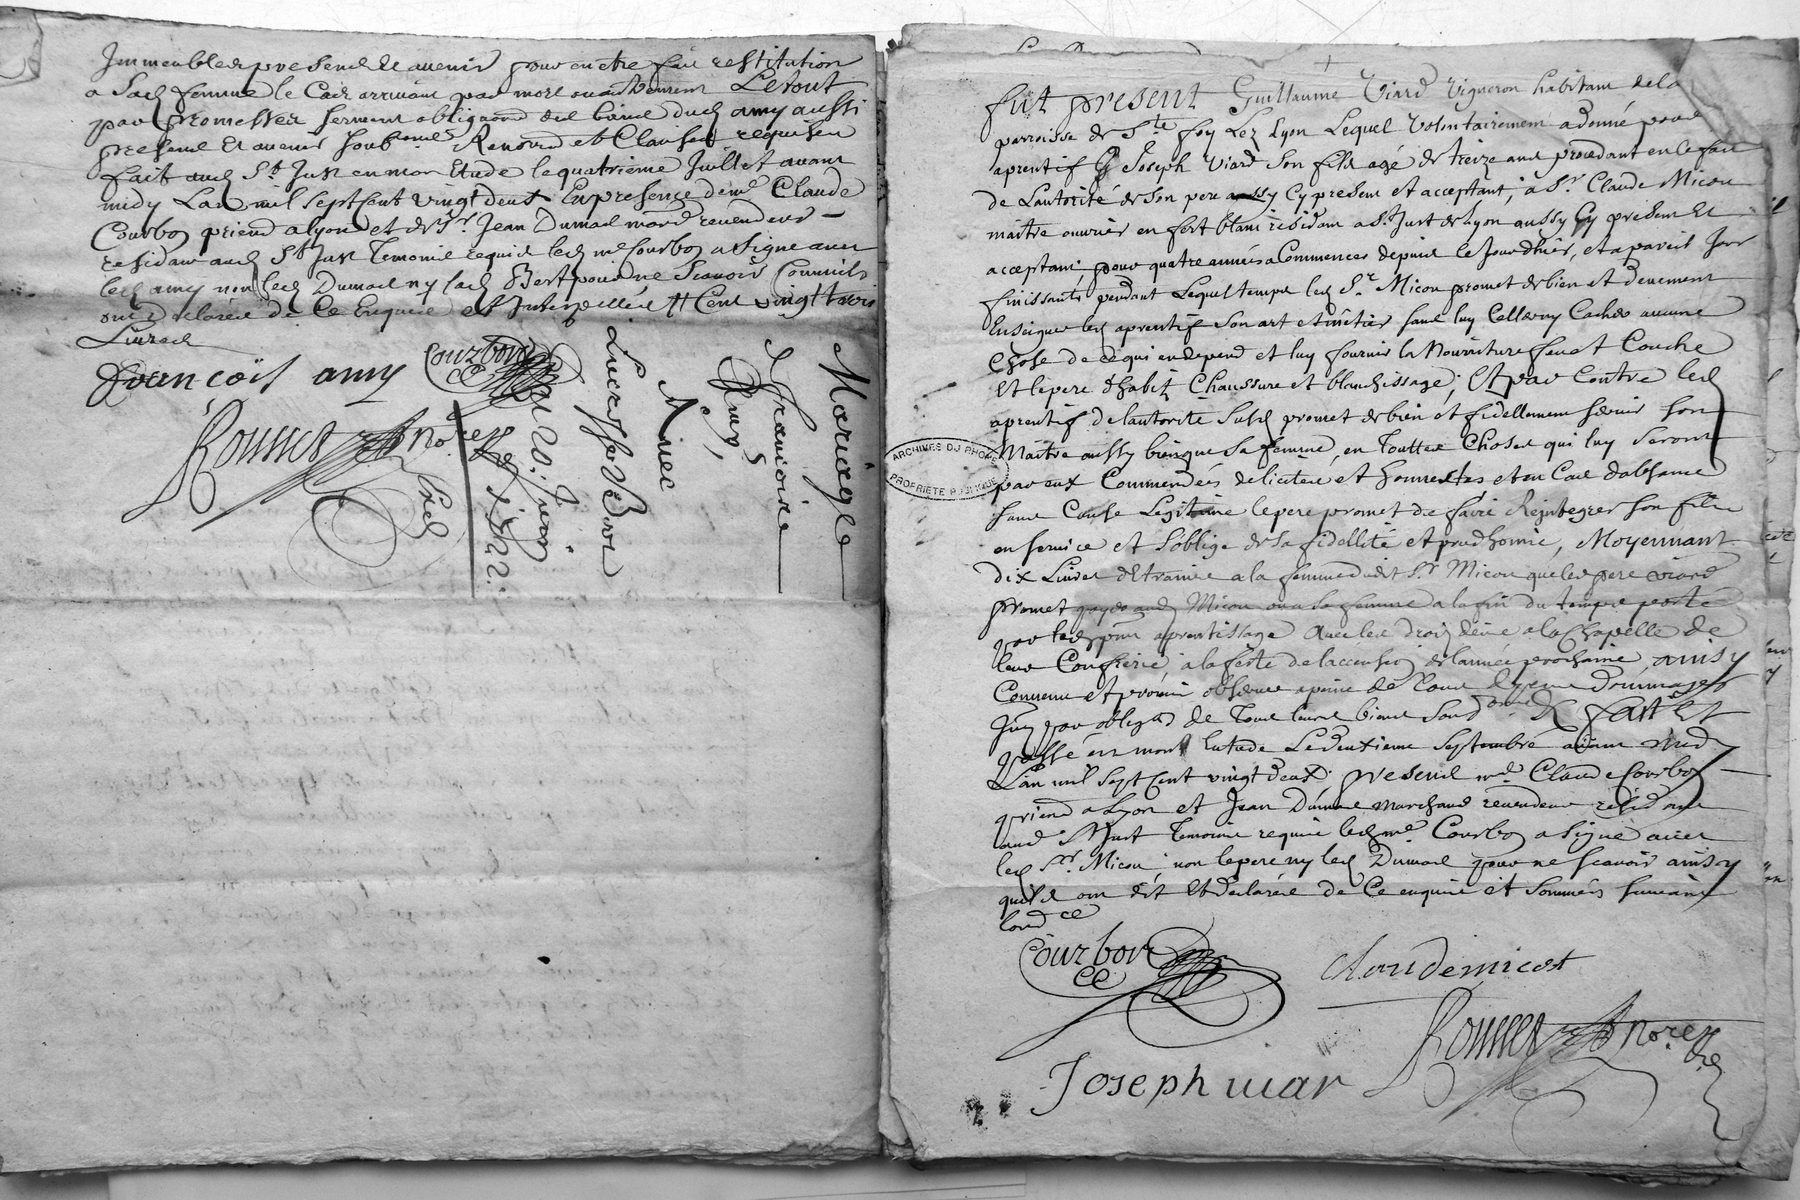 Immeubles presens et avenir pour en etre fait restitution
a sad femme le cas arrivant par mort ou autrement Le tout
par promesses serment obligaon des biens dud amy aussi
presens et avenir soub Renond et Clauses requises
fait aud St Just en mon Etude le quatrieme Juillet avant
midy Lan mil sept cent vingt deux En presence de me Claude
Courbon priend a lyon et de Sr Jean Dumas mard revendeur
residans aud St Just Temoins requis led me Courbon a signe avec
led amy non led Dumas ny lad Bert pour ne scavoir Comm'ils
ont declarés de Ce Enquis et Interpellés Cent vingt trois
Livres
francois amy
Courbon
Rounes nore
Mariage
de francois
Amy,
Avec
Lucresse Bert
du 4 Juin
1722.
fut present Guillaume Viard Vigneron habitant de la
parroisse de Ste foy Lez Lyon Lequel Volontairement a donné pour
aprentif Joseph Viard son fils agé de treize ans procedant en ce fait
de Lautorité de son pere aussy Cy present et acceptant, a Sr Claude Micou
maitre ouvrier en fert blanc residant a St Just de Lyon aussy Cy present Et
acceptant, pour quatre années a Commencer depuis le Jourdhuy, et a pareil Jour
finissants pendant Lequel temps led Sr Micou promet de bien et deuement
Enseigner led aprentif son art et metier sans luy Celler ny Cacher aucune
Chose de ce qui en depend et luy fournir la Nourriture feu et Couche
Et le pere dhabit Chaussure et blanchissage; Et par Contre led
aprentif de lautorité susd promet de bien et fidellement servir son
Maitre aussy bien que sa femme, en Touttes Choses qui luy seront
par eux Commandées de licites et honnestes et en Cas dabsance
sans Cause Legitime le pere promet de faire Rejntegrer son fils
en service et soblige de sa fidellité et prudhomie, Moyennant
dix Livres detraines a la femme dudt Sr Micou que led pere viard
promet payer aud Micou ou a sa femme a la fin du temps porté
par led pnt aprentissage avec les droits deus a la Chapelle de
leur Confrerie a la feste de laccension de lannée prochaine ainsy
Convenu et promis observer a peine de tous depens Dommages
Jnts par obligaon de Tous leurs biens & fait Et
passé en mon Estude Le deuxieme Septembre avant midy
Lan mil sept Cent vingt deux presens me Claude Courbon
priend a Lyon et Jean Dumas marchand revendeur residans
aud St Just Temoins requis led me Courbon a signé avec
led Sr Micou non le pere ny led Dumas pour ne scavoir ainsy
quils ont dit Et declarés de Ce enquis et sommés suivant
lord ce
Courbon
Claude micost
Rounes nore
Joseph uiar
ARCHIVES DU RHONE
PROPRIETE PUBLIQUE